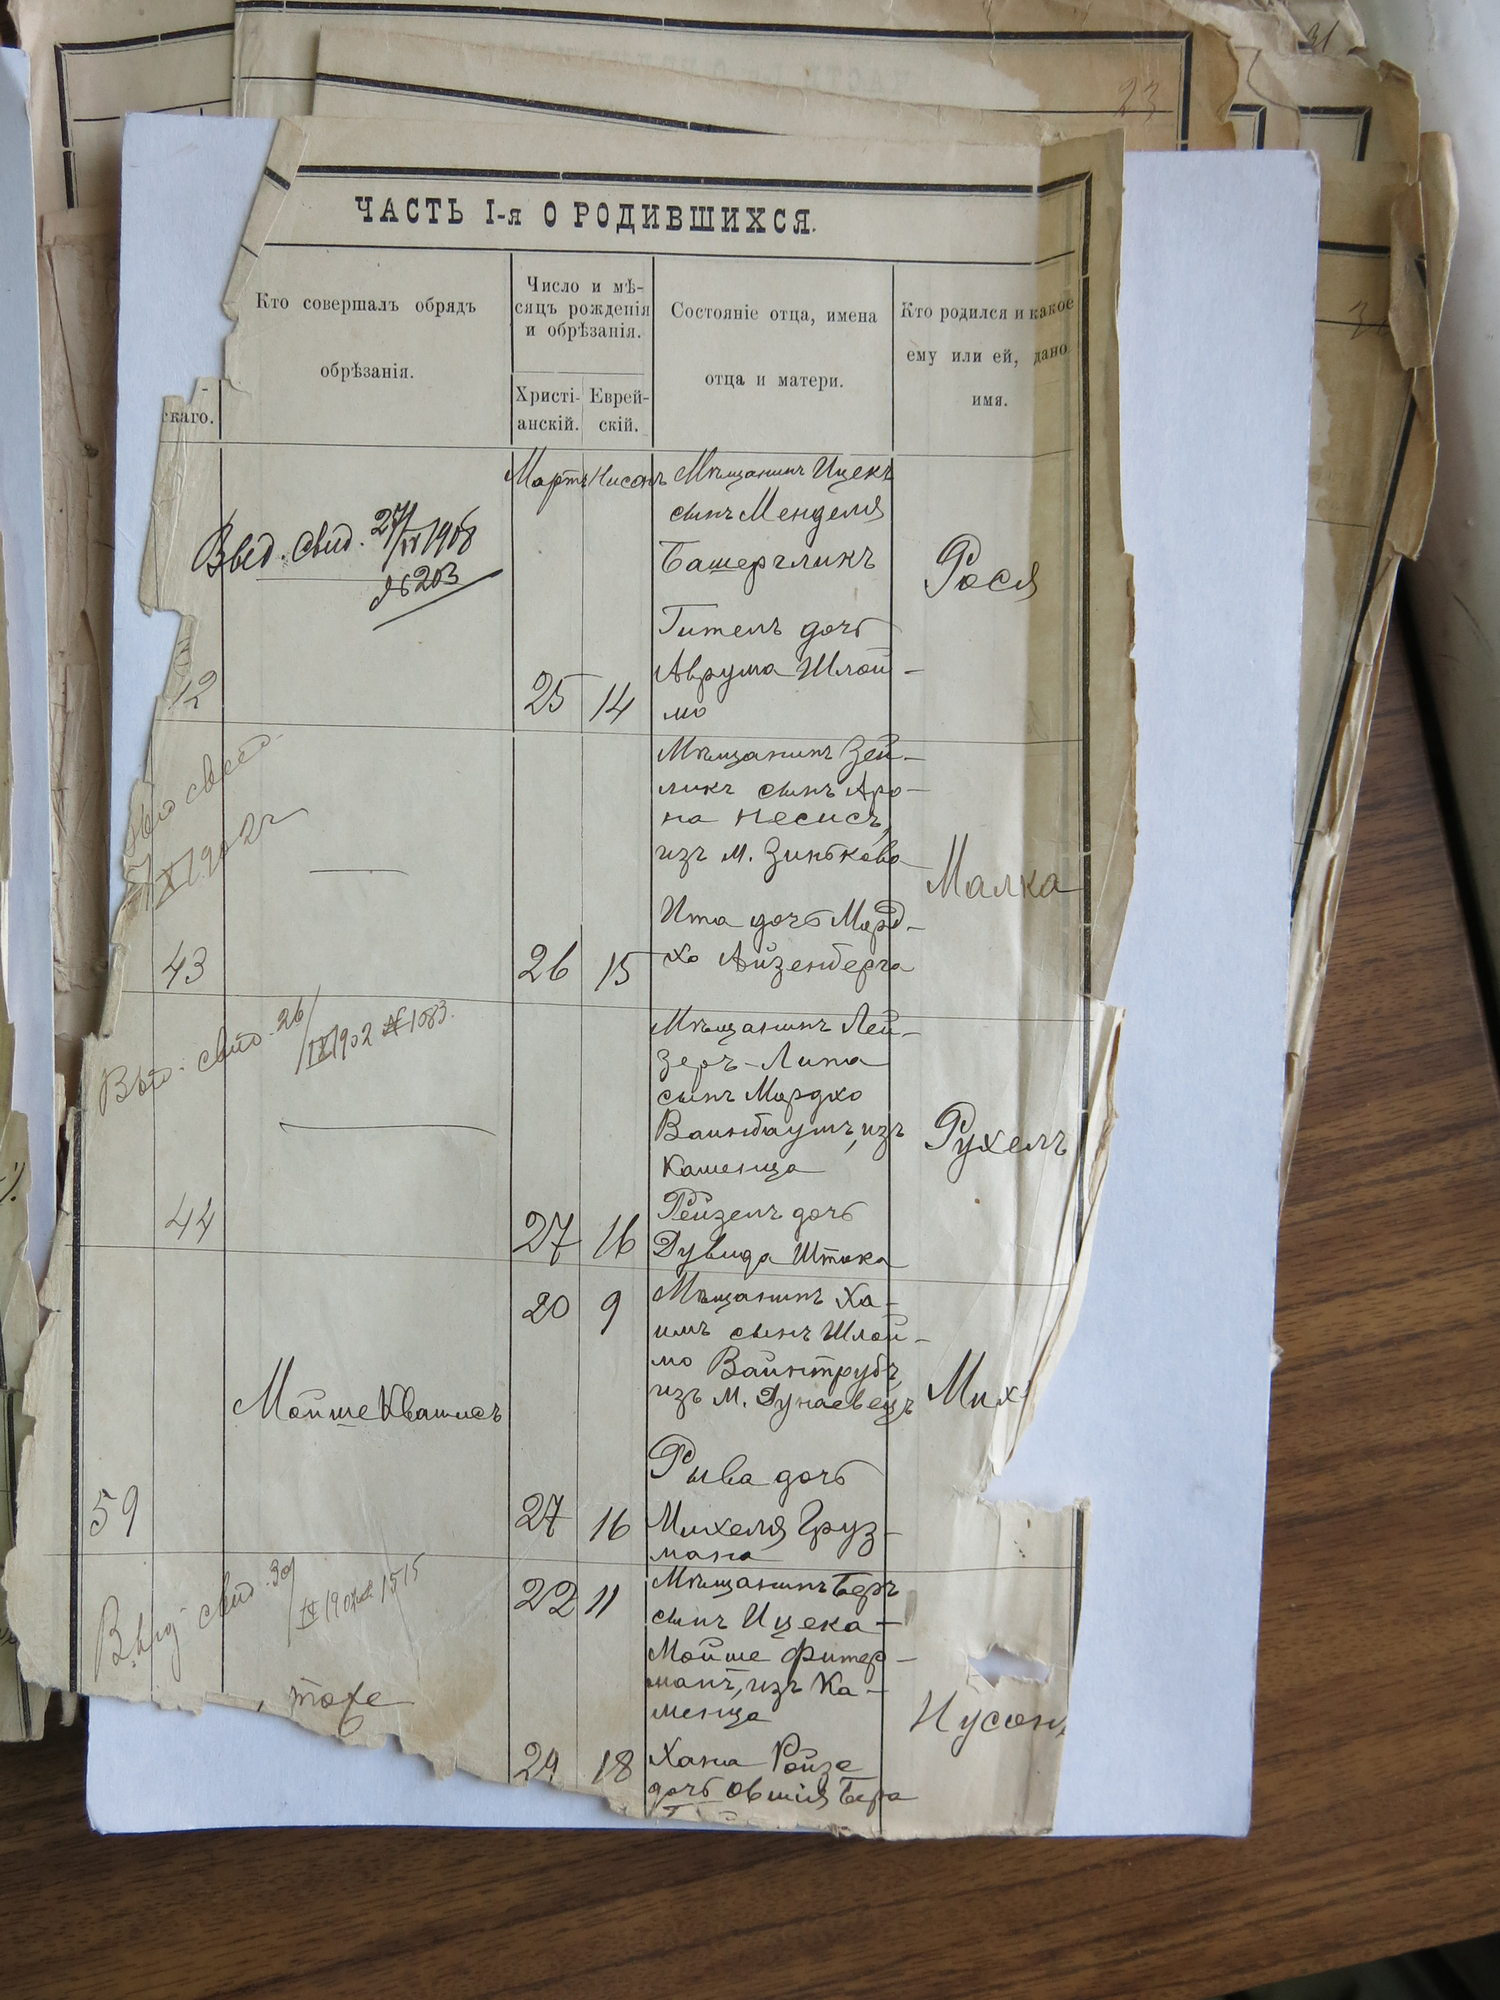 31
23
ЧАСТЬ I-я О РОДИВШИХСЯ.
скаго.
Кто совершалъ обрядъ
обрѣзанія.
Число и мѣ-
сяцъ рожденія
и обрѣзанія.
Христі-
анскій.
Еврей-
скій.
Состояніе отца, имена
отца и матери.
Кто родился и какое
ему или ей, дано
имя.
Мартъ Нисонъ
Выд. свид. 27/IV 1908
№ 203
25 14
Мѣщанинъ Ицекъ
сынъ Менделя
Башерчликъ
Гитель дочь
Аврума Шлой-
мо
Рося
43
26 15
Мѣщанинъ Зей-
ликъ сынъ Аро-
на Несисъ,
изъ м. Зинькова
Ита дочьМорд-
хо Айзенберга
Малка
Выд. свид. 26/IX 1902 № 1083.
44
27 16
Мѣщанинъ Лей-
зеръ-Липа
сынъ Мордко
Вайнбаумъ, изъ
Каменца
Рейзель дочь
Дувида Штока
Рухель
59
Мойше Квашисъ
20 9
27 16
Мѣщанинъ Ха-
имъ сынъ Шлой-
мо Вайнтрубъ,
изъ м. Дунаевецъ
Рыва дочь
Михеля Груз-
мана
Мих
Выд свид. 30/IX 190 № 1515
тоже
22 11
29 18
Мѣщанинъ Беръ
сынъ Ицека-
Мойше Фитер-
манъ, изъ Ка-
менца
Хана Ройзе
дочь Овшія Бера
Нусонъ